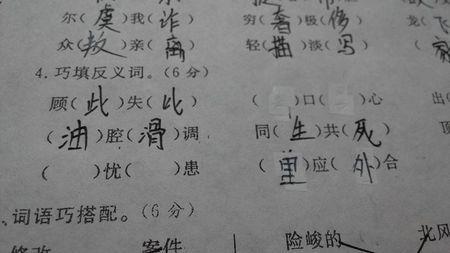 尔(虞)我(诈) 穷(奢)极(侈) 龙(飞
众( )亲(离) 轻(描)淡(写)
4.巧填反义词。(6分)
顾(此)失(比) ( )口( )心 出(
(油)腔(滑)调 同(生)共(死) 顶
( )忧( )患 (里)应(外)合
、词语巧搭配。(6分)
修改 案件 险峻的 北风